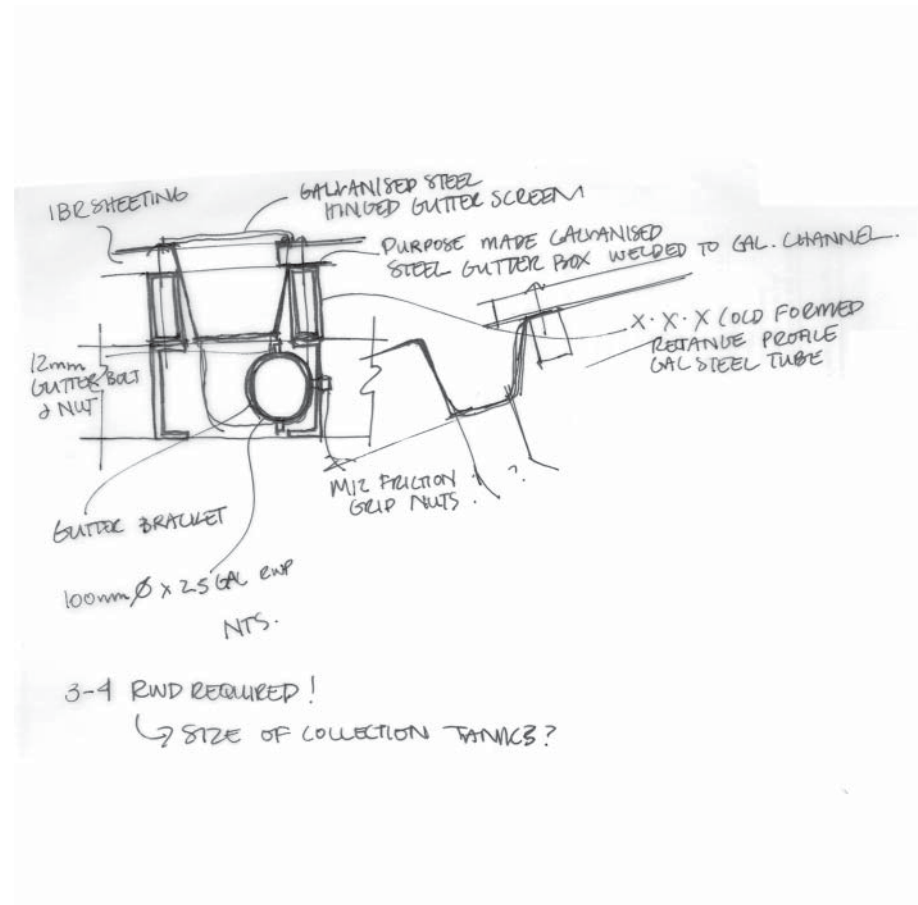 IBR SHEETING
GALVANISED STEEL
HINGED GUTTER SCREEN
PURPOSE MADE GALVANISED
STEEL GUTTER BOX WELDED TO GAL. CHANNEL.
X·X·X COLD FORMED
PROFILE
GAL STEEL TUBE
12mm
GUTTER BOLT
& NUT
M12 FRICTION
GRIP NUTS.
?
GUTTER BRACKET
100mm Ø x 2.5 GAL RWP
NTS.
3-4 RWD REQUIRED!
SIZE OF COLLECTION TANKS?